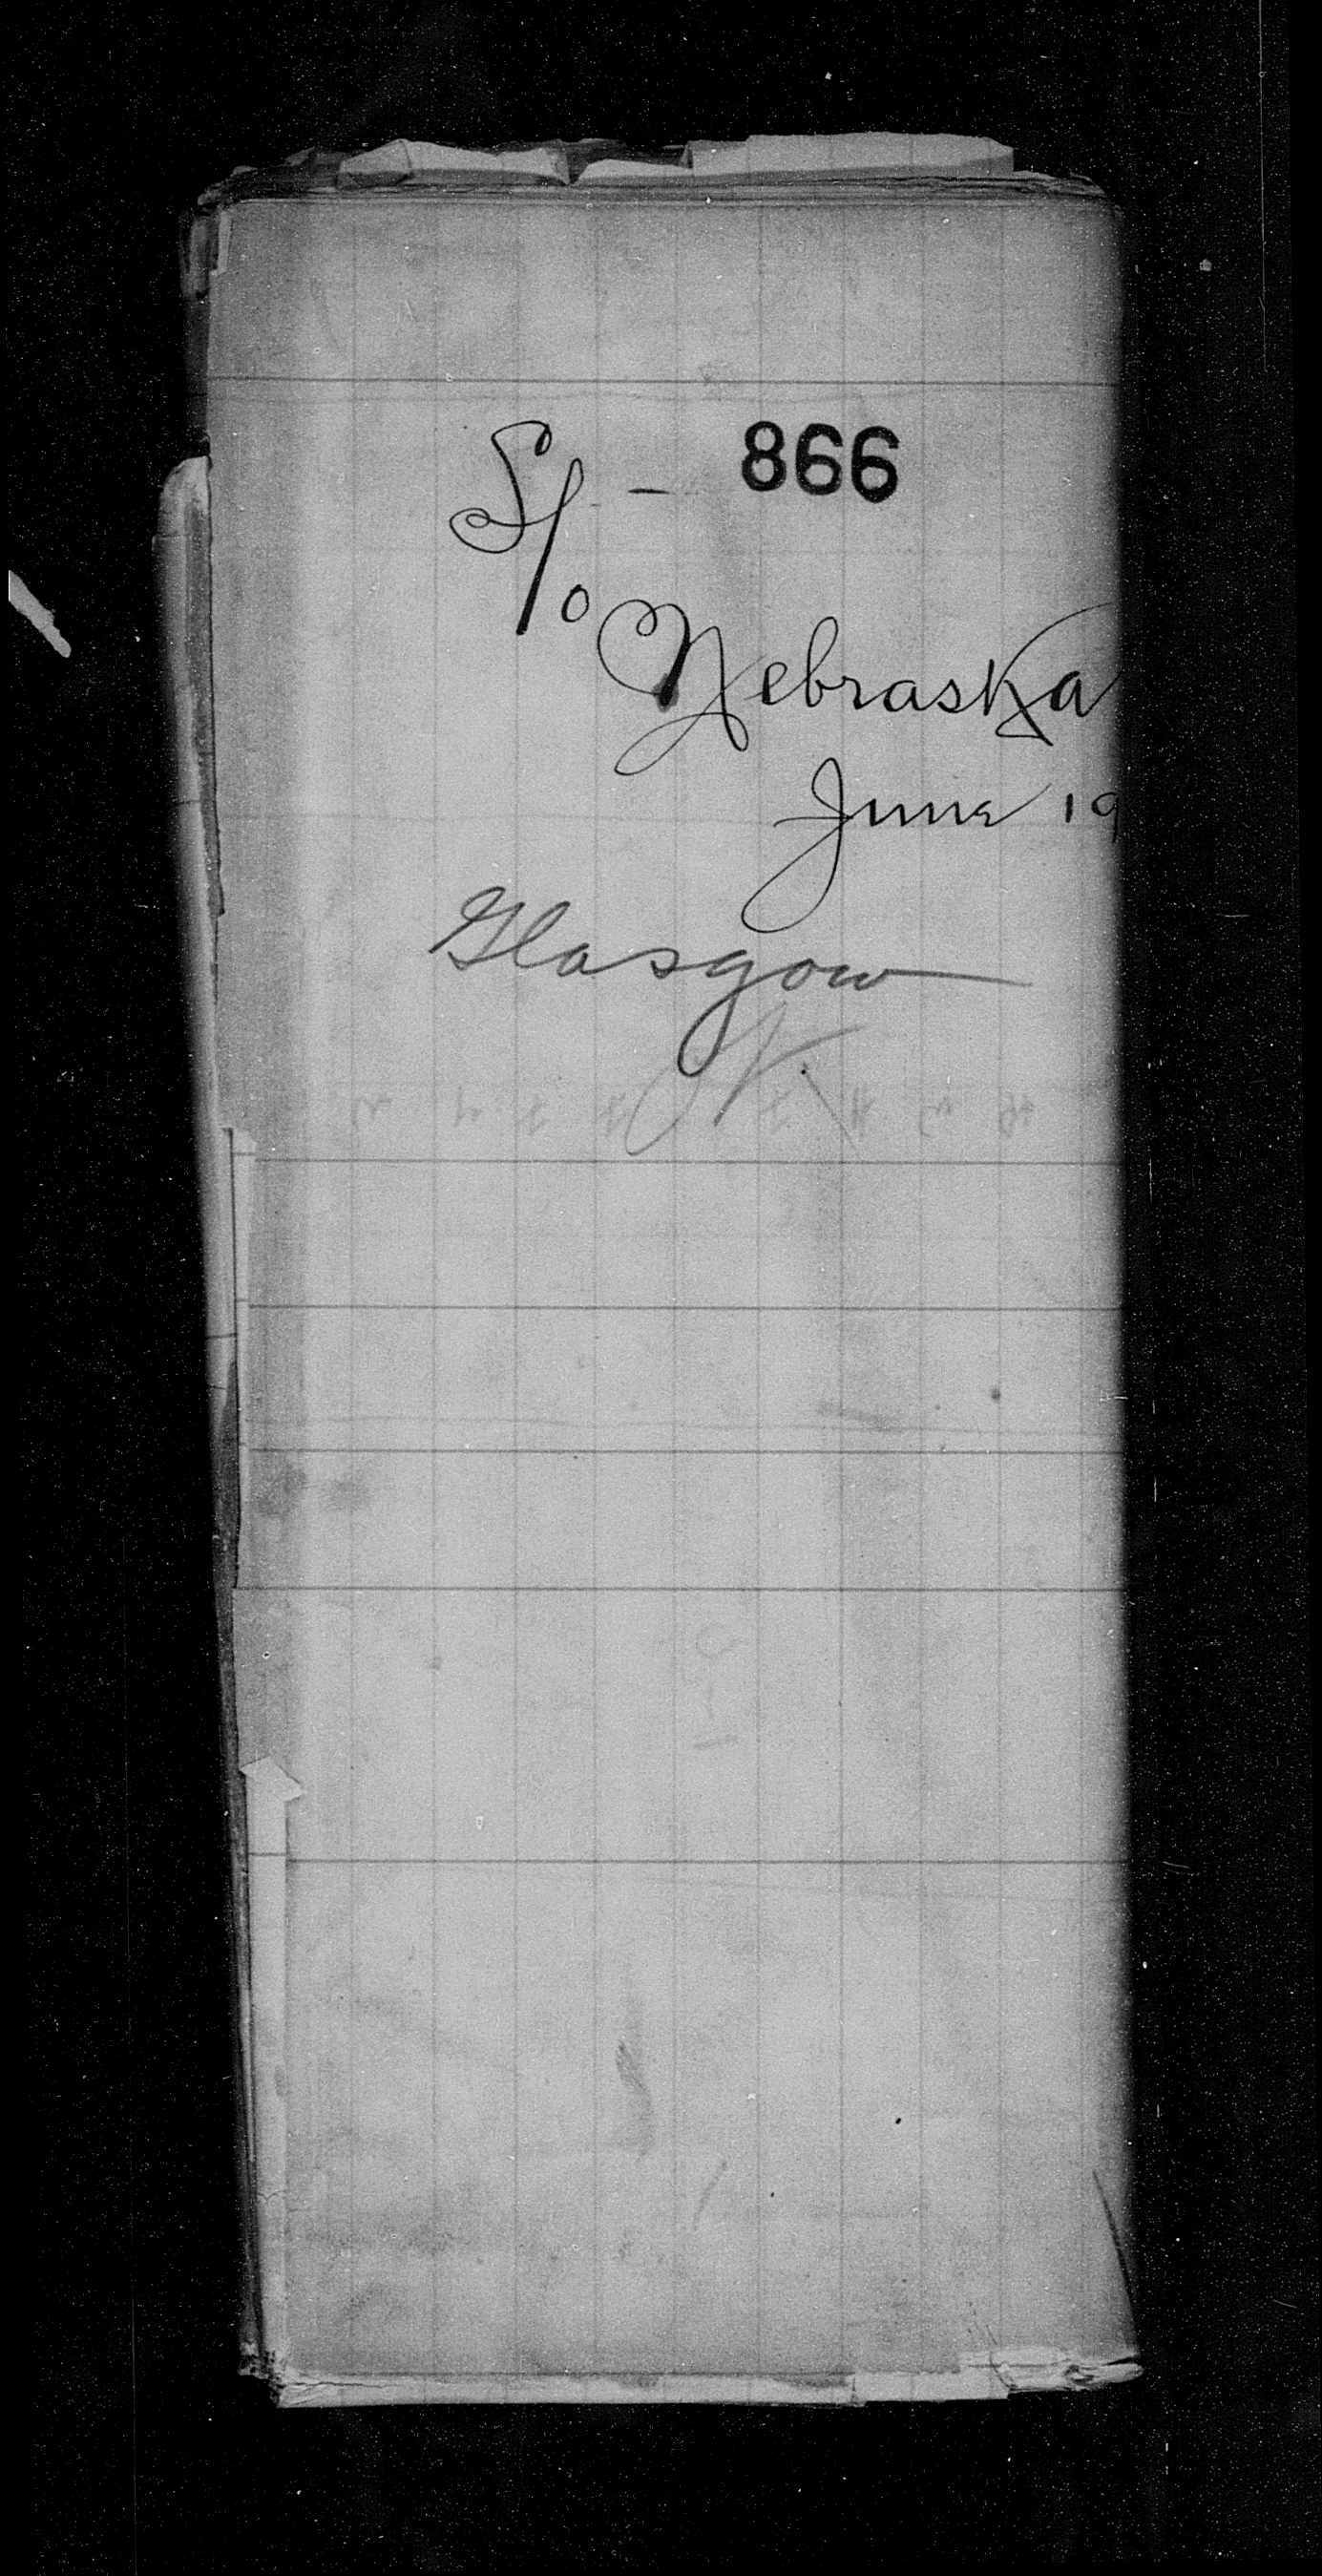 S/o - 866
Nebraska
June 19
Glasgow